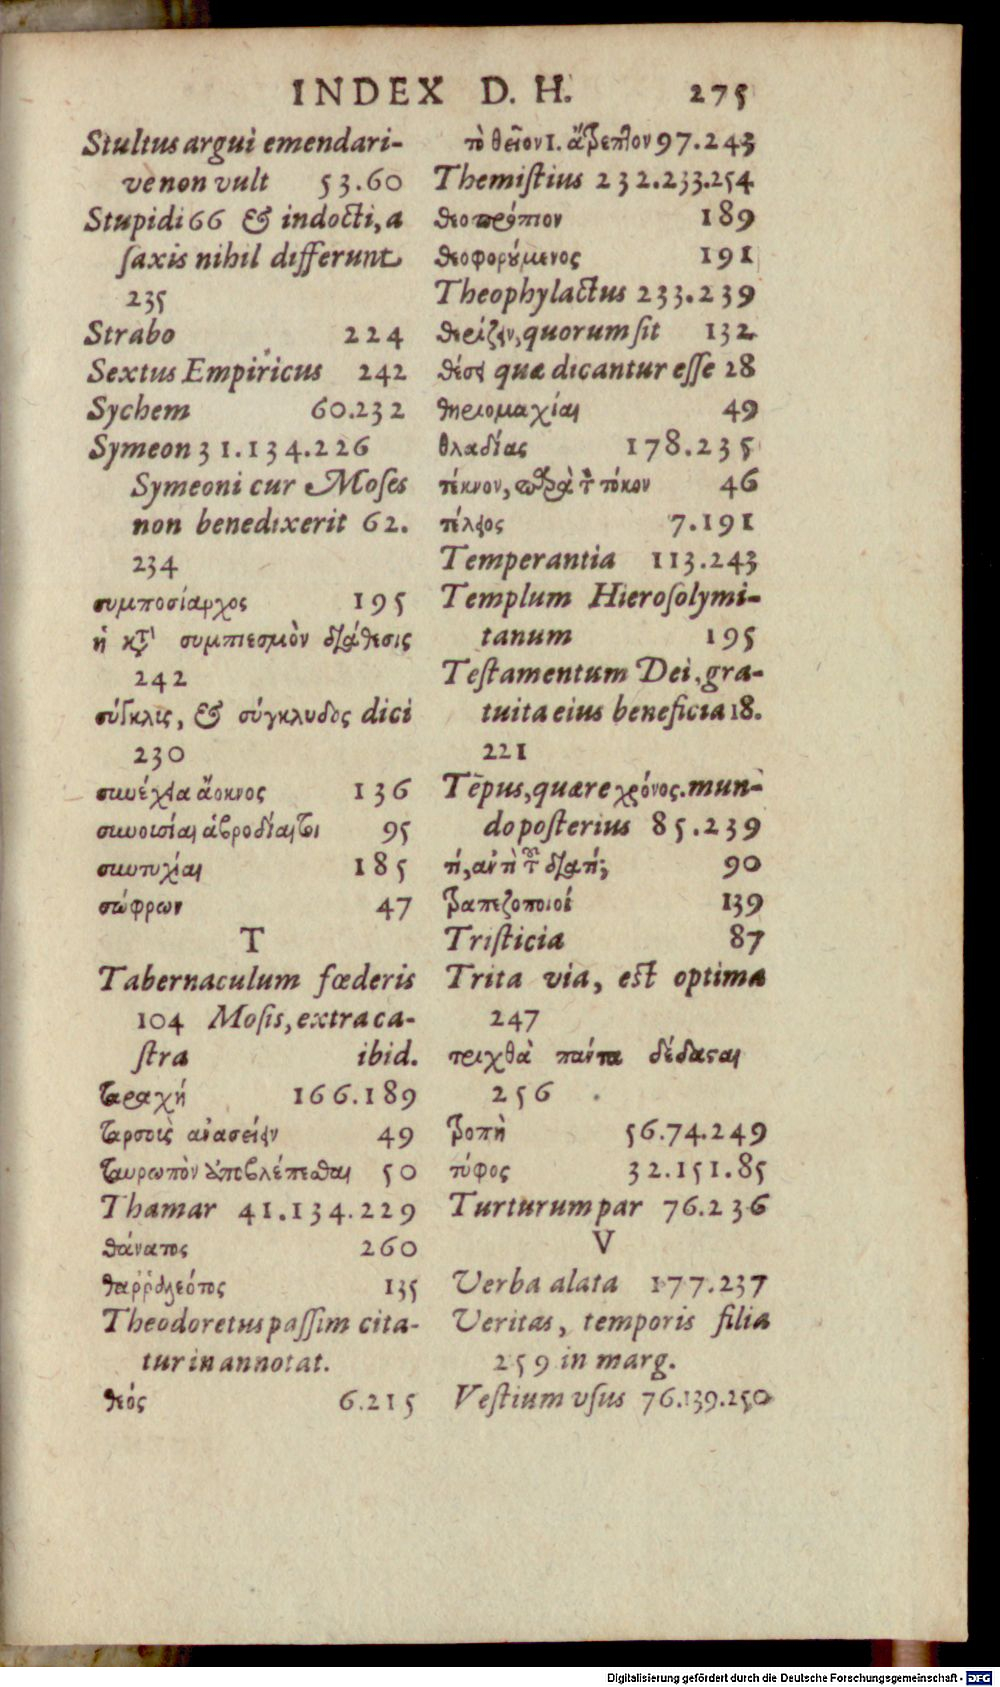 INDEX D. H. 275
Stultus argui emendari-
ve non vult 53.60
Stupidi 66 & indocti, a
saxis nihil differunt
235
Strabo 224
Sextus Empiricus 242
Sychem 60.232
Symeon 31.134.226
Symeoni cur Moses
non benedixerit 62.
234
συμποσίαρχος 195
ἡ κτ̀ συμπιεσμὸν διάθεσις
242
σύγκλις, & σύγκλυδος dici
230
συνέχεια ἄοκνος 136
συνουσίαι ἁβροδίαιτοι 95
συντυχίαι 185
σώφρων 47
T
Tabernaculum fœderis
104 Mosis, extra ca-
stra ibid.
ταραχή 166.189
ταρσοῖς ἀνασείειν 49
ταυρωπὸν ἀποβλέπεσθαι 50
Thamar 41.134.229
θάνατος 260
135
Theodoretus passim cita-
tur in annotat.
θεός 6.215
τὸ θεῖον 1. ἄτρεπτον 97.243
Themistius 232.233.254
θεοπρόπιον 189
θεοφορούμενος 191
Theophylactus 233.239
quorum sit 132
θέσει quæ dicantur esse 28
θηριομαχίαι 49
θλαδίας 178.235
τέκνον, παρὰ τ̃ τόκον 46
τέλειος 7.191
Temperantia 113.243
Templum Hierosolymi-
tanum 195
Testamentum Dei, gra-
tuita eius beneficia 18.
221
Tēpus, quære χρόνος. mun-
do posterius 85.239
τί, ἀντὶ τ͂ διατί; 90
τραπεζοποιοί 139
Tristicia 87
Trita via, est optima
247
τριχθὰ πάντα δέδασται
256
τροπὴ 56.74.249
τύφος 32.151.85
Turturum par 76.236
V
Verba alata 177.237
Veritas, temporis filia
259 in marg.
Vestium vsus 76.139.250
Digitalisierung gefördert durch die Deutsche Forschungsgemeinschaft - DFG